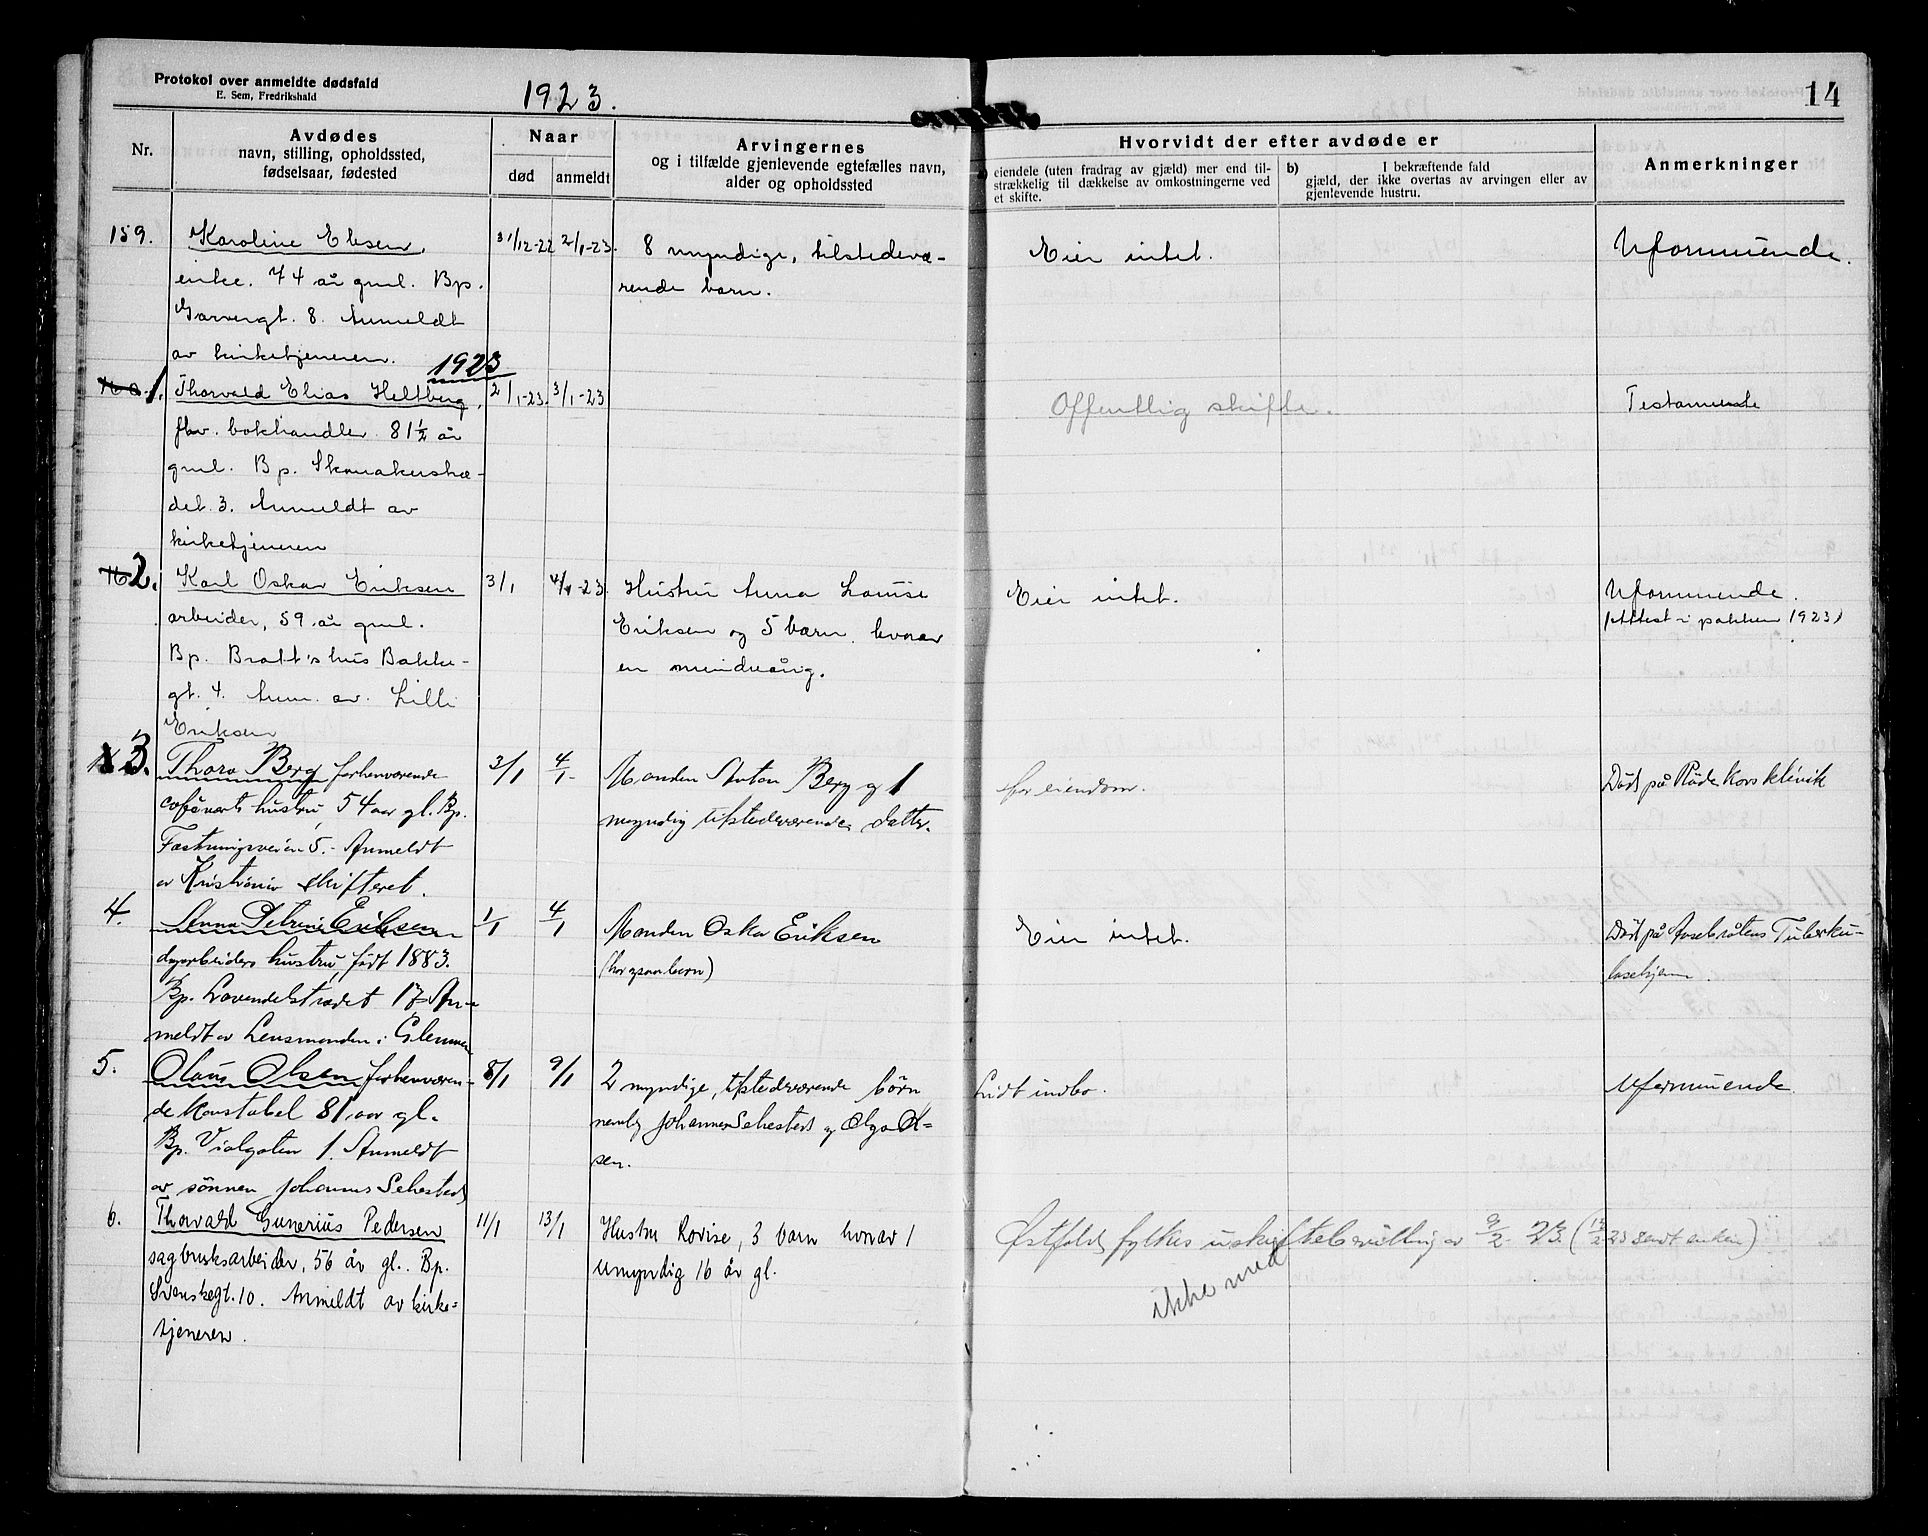 Protokol over anmeldte dødsfald
E. Sem, Fredrikshald
1923.
14
Nr.
Avdødes
navn, stilling, opholdssted,
fødselsaar, fødested
Naar
død
anmeldt
Arvingernes
og i tilfælde gjenlevende egtefælles navn,
alder og opholdssted
Hvorvidt der efter avdøde er
eiendele (uten fradrag av gjæld) mer end til-
strækkelig til dækkelse av omkostningerne ved
et skifte.
b) I bekræftende fald
gjæld, der ikke overtas av arvingen eller av
gjenlevende hustru.
Anmerkninger
159. Karoline Elisen, 31/12-22 2/1-23. 8 myndige, tilstedevæ- Eier intet. Uformuende.
enke. 74 år gml. Bp. rende barn.
Garvergt. 8. Anmeldt
av kirketjeneren.
1923
1. Thorvald Elias Heltberg, 2/1-23. 3/1-23 Offentlig skifte. Testamente
fhv. bokhandler. 81½ år
gml. Bp. Skomakerstræ-
det 3. Anmeldt av
kirketjeneren
2. Karl Oskar Eriksen 3/1 4/1-23. Hustru Anna Louise Eier intet. Uformuende.
arbeider, 59 år gml. Eriksen og 5 barn, hvorav (Attest i pakken 1923)
Bp. Bratt's hus Bakke- en mindreårig.
gt. 4. Anm. av Lilli
Eriksen
3. Thora Berg forhenværende 3/1 4/1- Manden Anton Berg og 1 for eiendom. Död på Röde Kors klinik
caféverts hustru, 54 aar gl. Bp. myndig tilstedeværende datter.
Fæstningsveien 5.- Anmeldt
av Kristiania skifteret.
4. Anna Petrine Eriksen 1/1 4/1 Manden Oskar Eriksen Eier intet. Död på Tuberku-
dagarbeiders hustru, født 1883. losehjem
Bp. Lavendelstrædet 17. An-
meldt av Lensmanden i Glemmen
5. Olaus Olsen forhenværen- 8/1 9/1 2 myndige, tilstedeværende børn Lidt indbo. Uformuende.
de konstabel 81 aar gl. nemlig Johannes Sehested og Olga Ol-
Bp. Violgaten 1. Anmeldt sen.
av sønnen Johannes Sehested
6. Thorvald Gunerius Pedersen 11/1 13/1 Hustru Lovise, 3 barn hvorav 1 Østfold fylkes uskiftebevilling av 9/2 23. (12/2 23 sendt enken)
sagbruksarbeider, 56 år gl.. Bp. umyndig 16 år gl. ikke med
Svenskegt. 10. Anmeldt av kirke-
tjeneren.